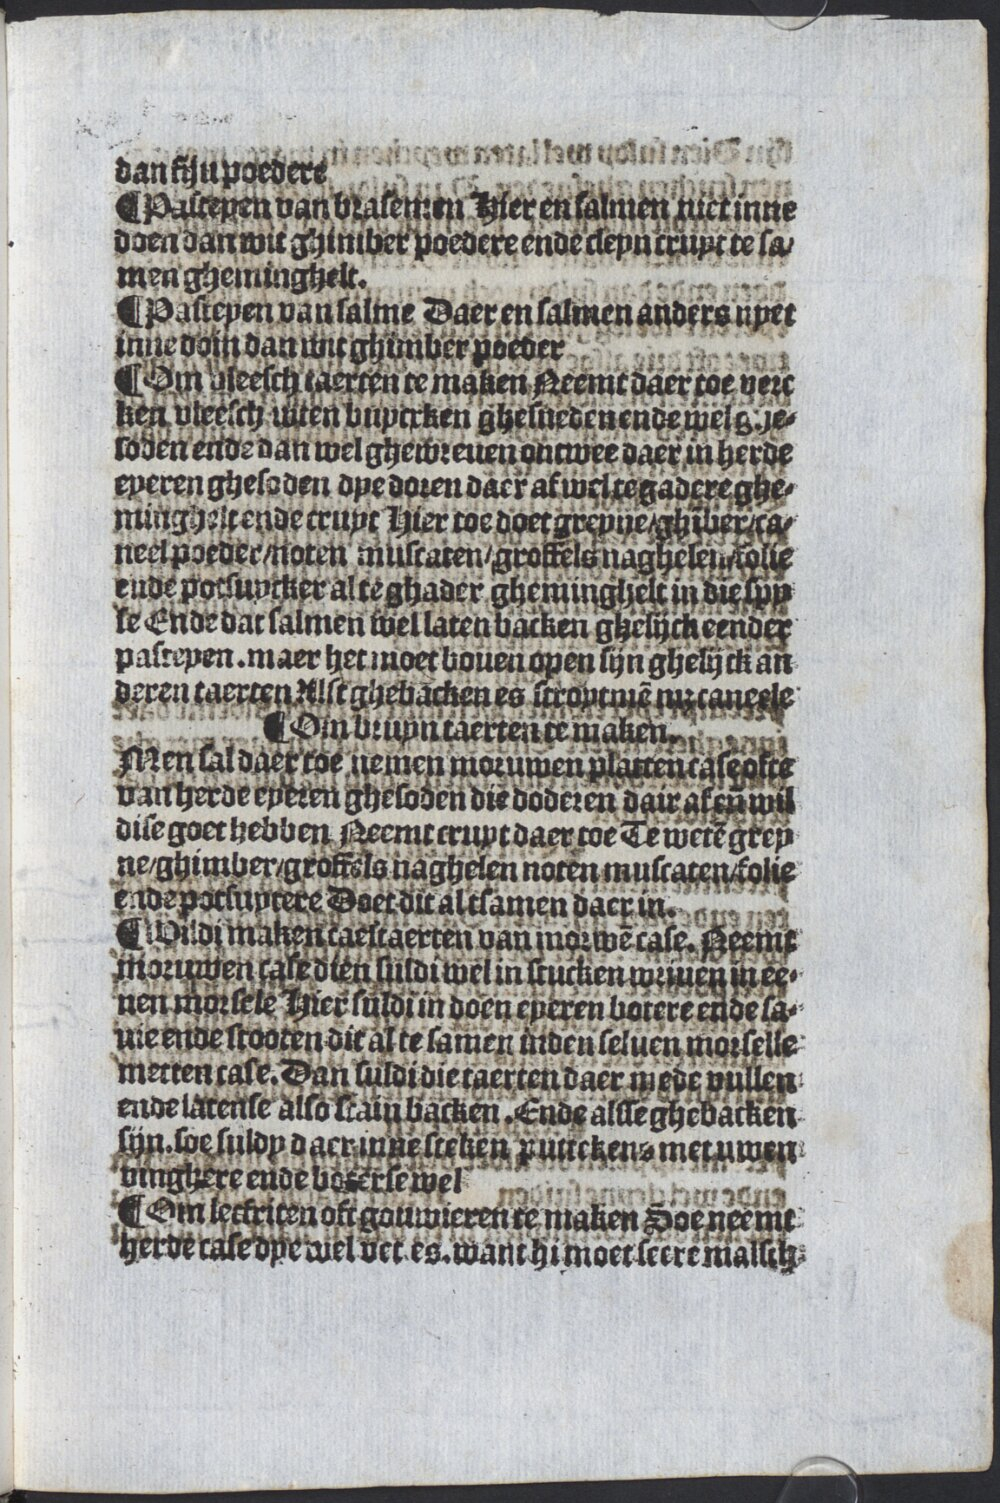 dan fijn poedere
¶Pasteyen van brasemen Hier en salmen niet inne
doen dan wit ghimber poedere ende cleyn cruyt te sa/
men gheminghelt.
¶Pasteyen van salme Daer en salmen anders nyet
inne doin dan wit ghimber poeder
¶Om vleesch taerten te maken Neemt daer toe verc
ken vleesch wten buycxken ghesneden ende wel g je-
soden ende dan wel ghewreuen ontwee daer in herde
eyeren ghesoden dye doren daer af wel te gadere ghe-
minghelt ende cruyt Hier toe doet greyne/ghĩber/ca/
neel poeder/noten muscaten/groffels naghelen/folie
ende potsuycker al te ghader gheminghelt in die spy
se Ende dat salmen wel laten backen ghelijck eender
pasteyen. maer het moet bouen open sijn ghelijck an
deren taerten Alst ghebacken es stroytmẽ nv caneele
¶Om bruyn taerten te maken.
Men sal daer toe nemen moruwen platten case ofte
van herde eyeren ghesoden die doderen dair af eñ wil
dise goet hebben Neemt cruyt daer toe Te wetẽ grey
ne/ghimber/groffels naghelen noten muscaten/folie
ende potsuyckere Doet dit al tsamen daer in.
¶Wildi maken caestaerten van morwẽ case. Neemt
moruwen case dien suldi wel in stucken wriuen in ee-
nen morsele Hier suldi in doen eyeren botere ende sa-
uie ende stooten dit al te samen inden seluen morselle
metten case. Dan suldi die taerten daer mede vullen
ende latense also stain backen. Ende alsse ghebacken
sijn. soe suldy daer inne steken puttckens met uwen
vinghere ende boterse wel
¶Om lecfriten oft gouwieren te maken Soe neemt
herde case dye wel vet es. want hi moet seere malsch